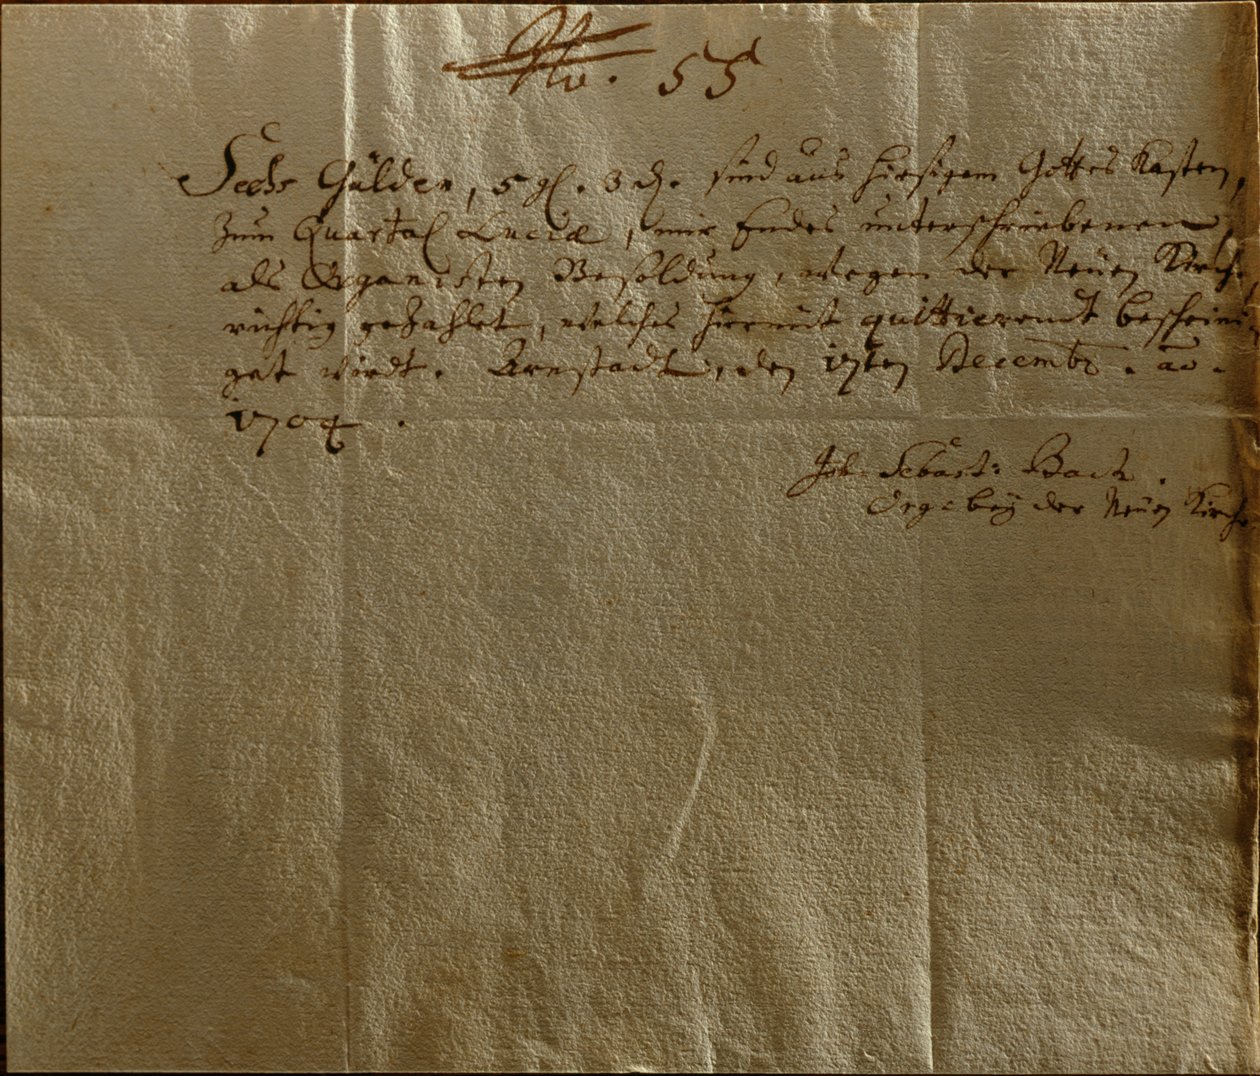 No. 55
Sechs Gülden, 5 gl. 3 d. sind aus hiesigem Gottes Kasten,
zum Quartal Luciæ, mir Endes unterschriebenen
als Organisten Besoldung, wegen der Neüen Kirche
richtig gezahlet, welches hiermit quittierendt bescheini
get wirdt. Arnstadt, den 17ten Decembr. ao.
1704.
Joh. Sebast: Bach.
Org: bey der Neüen Kirche